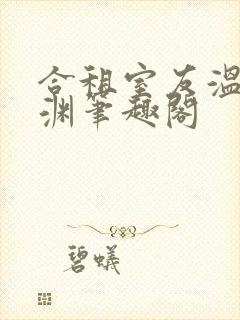 合租室友温
渊笔趣阁
碧蚁